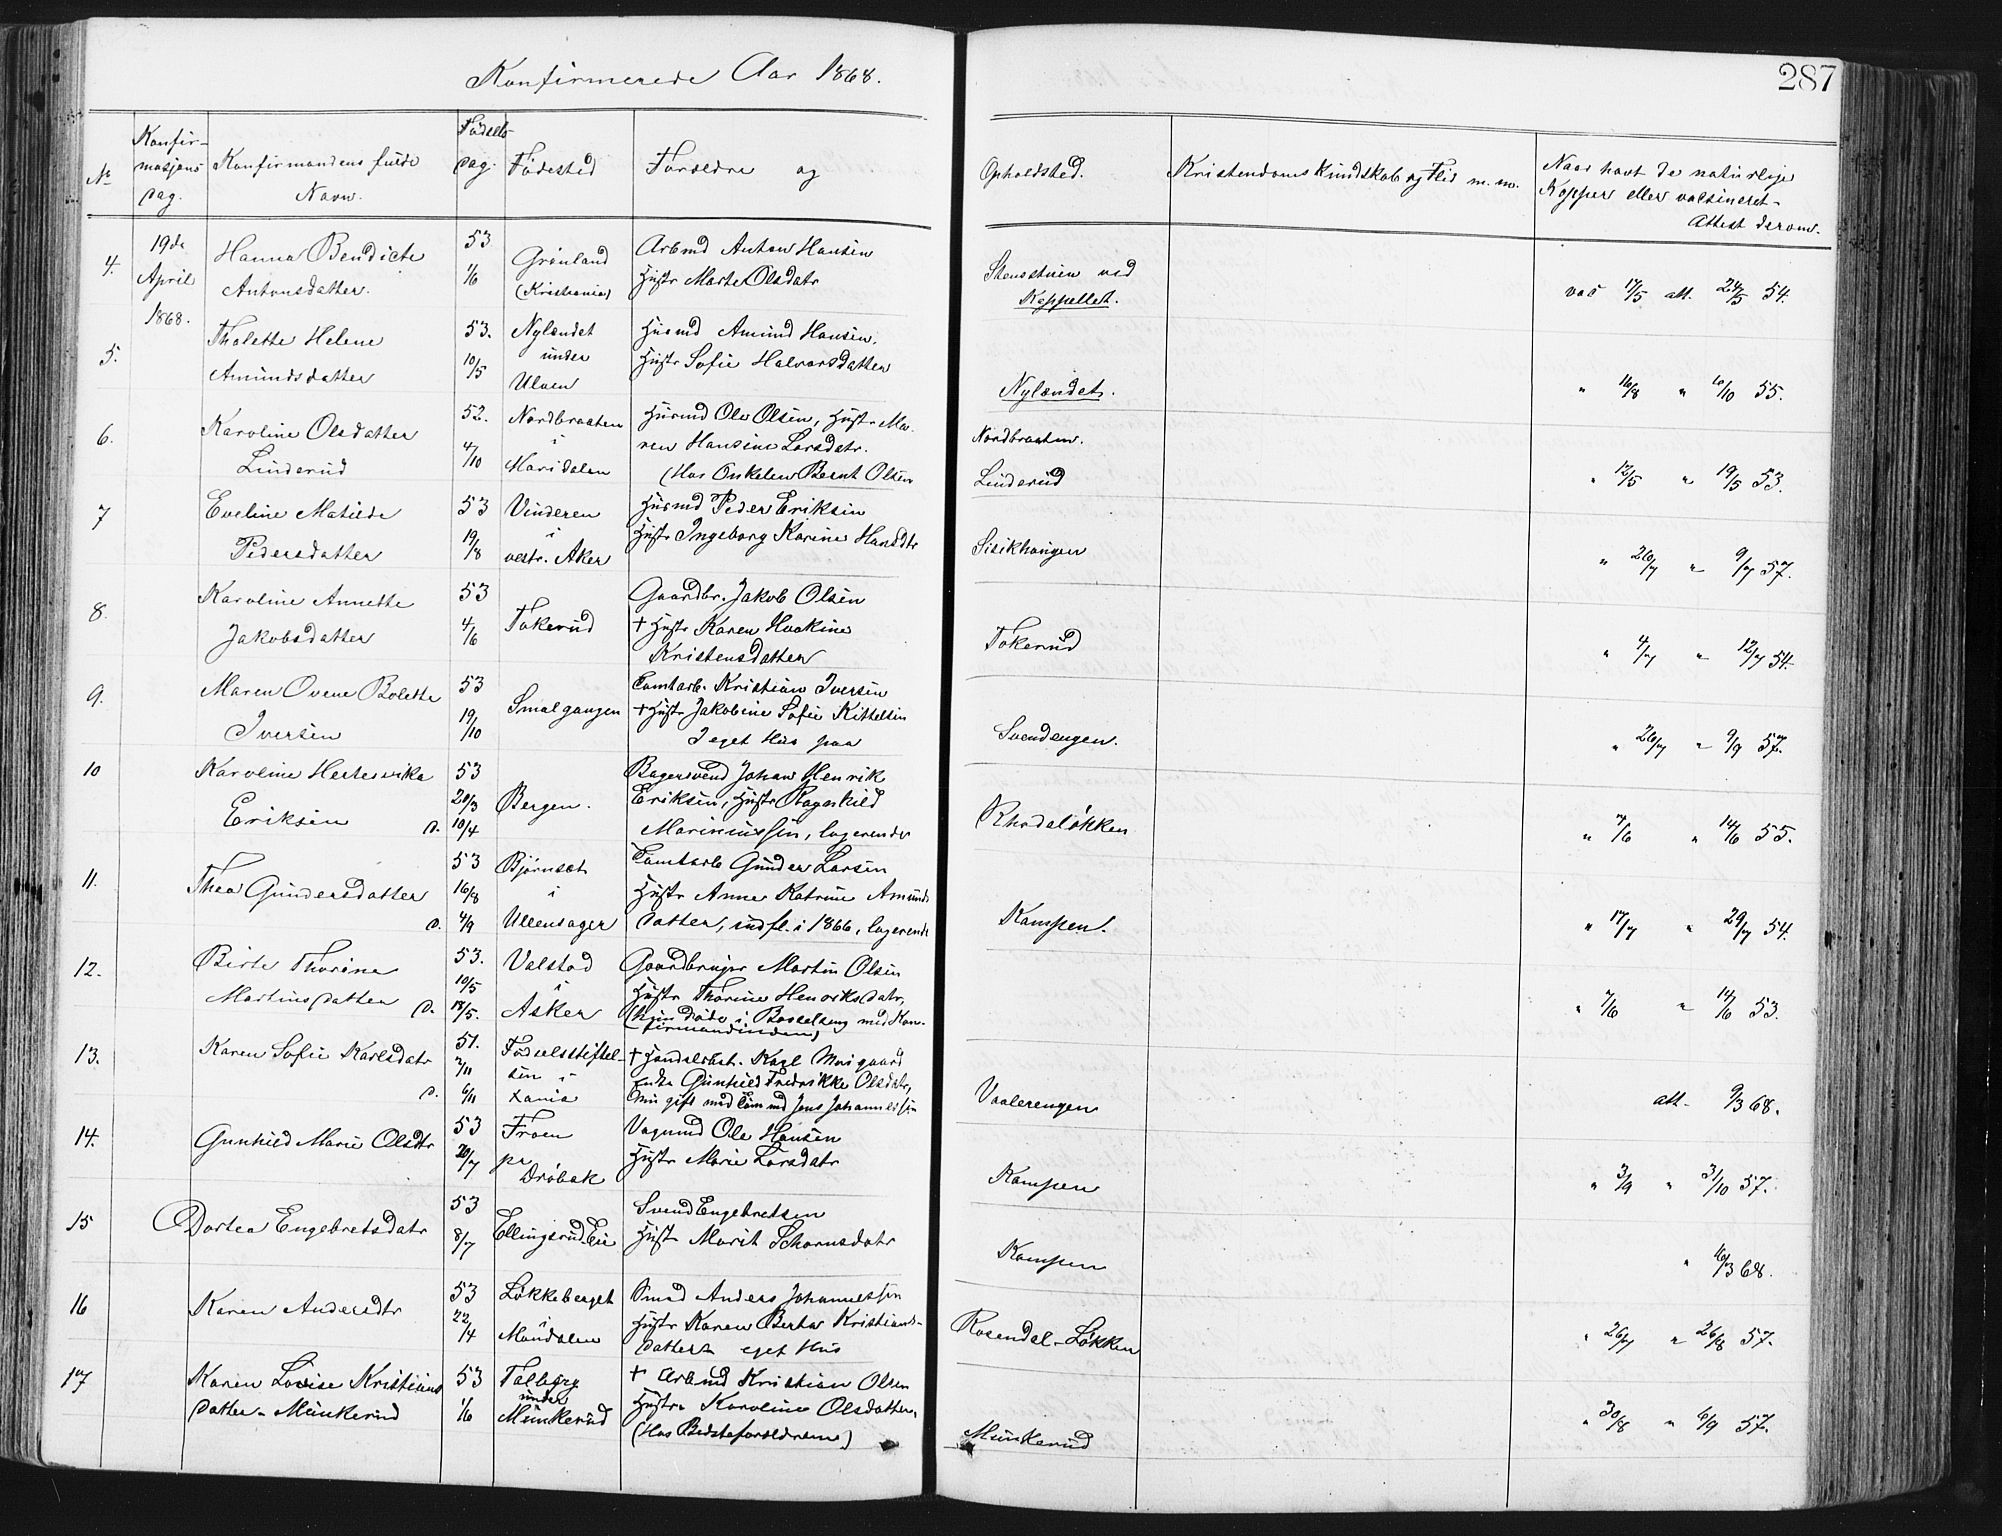 Konfirmerede Aar 1868.
287
№
Konfir-
masjons
dag.
Konfirmandens fulde
Navn.
Fødsels-
dag.
Fødested
Forældre og
Opholdsted.
Kristendoms Kundskab og Flid m.m.
Naar havt de naturlige
Kopper eller vaksineret-
Attest derom.
4.
19de
April
1868.
Hanna Bendicte
Antonsdatter.
53
1/6
Grønland
(Kristiania)
Arbmd Anton Hansen
Hustr Marte Olsdatr
Stensstuen ved
Kappellet.
vac 17/5 att. 24/5 54.
5.
Tholette Helene
Amundsdatter
53.
10/5
Nylændet
under
Ulven
Husmd Amund Hansen,
Hustr Sofie Halvorsdatter
Nylændet.
" 16/8 " 6/10 55.
6.
Karoline Olsdatter
Linderud
52.
4/10
Nordbraaten
i
Maridalen
Husmd Ole Olsen, Hustr Ma-
ren Hansine Larsdatr.
(Hos Onkelen Bernt Olsen
Nordbraaten.
Linderud
" 12/5 " 19/5 53.
7
Eveline Matilde
Pedersdatter
53
19/8
Vinderen
i
vestr. Aker
Husmd Peder Eriksen
Hustr Ingeborg Karine Hansdtr
Sisikhaugen
" 20/7 " 9/7 57.
8.
Karoline Annette
Jakobsdatter
53
4/6
Tokerud
Gaardbr. Jakob Olsen
+ Hustr Karen Haakine
Kristensdatter
Tokerud
" 4/7 " 12/7 54.
9.
Maren Ovene Bolette
Iversen
53
19/10
Smalgangen
Tomtarb. Kristian Iversen
+ Hustr Jakobine Sofie Kittelsen
I eget Hus paa
Svendengen.
" 20/7 " 9/9 57.
10
Karoline
Eriksen
53
20/3
d. 10/4
Bergen.
Bagersvend Johan Henrik
Eriksen, Hustr Ragnhild
Mariniussen, logerende
Rhodeløkken
" 7/6 " 14/6 55.
11.
Thea Gundersdatter
53
16/8
d. 4/9
Bjørnset
i
Ullensager
Tomtarb Gunder Larsen
Hustr Anne Katrine Amunds
datter, indfl. i 1866, logerende
Kampen.
" 17/7 " 29/7 54.
12.
Birte Thorine
Martinsdatter
53.
10/5
d. 18/5.
Valstad
i
Asker
Gaardbruger Martin Olsen
Hustr Thorine Henriksdatr,
(hun døde i Barselseng med Kon-
firmandinden)
" 7/6 " 14/6 53.
13.
Karen Sofie Karlsdatr
51.
2/11
d. 6/11
Fødselsstiftel-
sen i
Xania
+ Handelsbet. Karl
Enke Gunhild Fredrikke Olsdatr,
nu gift med Tømmd Jens Johannessen
Vaalerengen
att. 9/3 68.
14.
Gunhild Marie Olsdtr
53
20/7
Froen
pr
Drøbak
Vognmd Ole Hansen
Hustr Marie Larsdatr
Kampen
" 3/9 " 3/10 57.
15
Dortea Engebretsdatr
53
8/7
Ellingsrud Eie
Svend Engebretsen
Hustr Marit
Kampen
" 10/3 68.
16
Karen Andersdtr
53
22/4
Løkkeberget
i
Maridalen
Smed Anders Johannessen
Hustr Karen Berte Kristians-
datter eget Hus
Rosendal-Løkken
" 26/7 " 26/8 57.
17
Karen Lovise Kristians
datter-Munkerud
53
1/6
Tolberg
under
Munkerud
+ Arbmd Kristian Olsen
Hustr. Karoline Olsdatter,
(Hos Bedsteforældrene)
Munkerud
" 30/8 " 6/9 57.